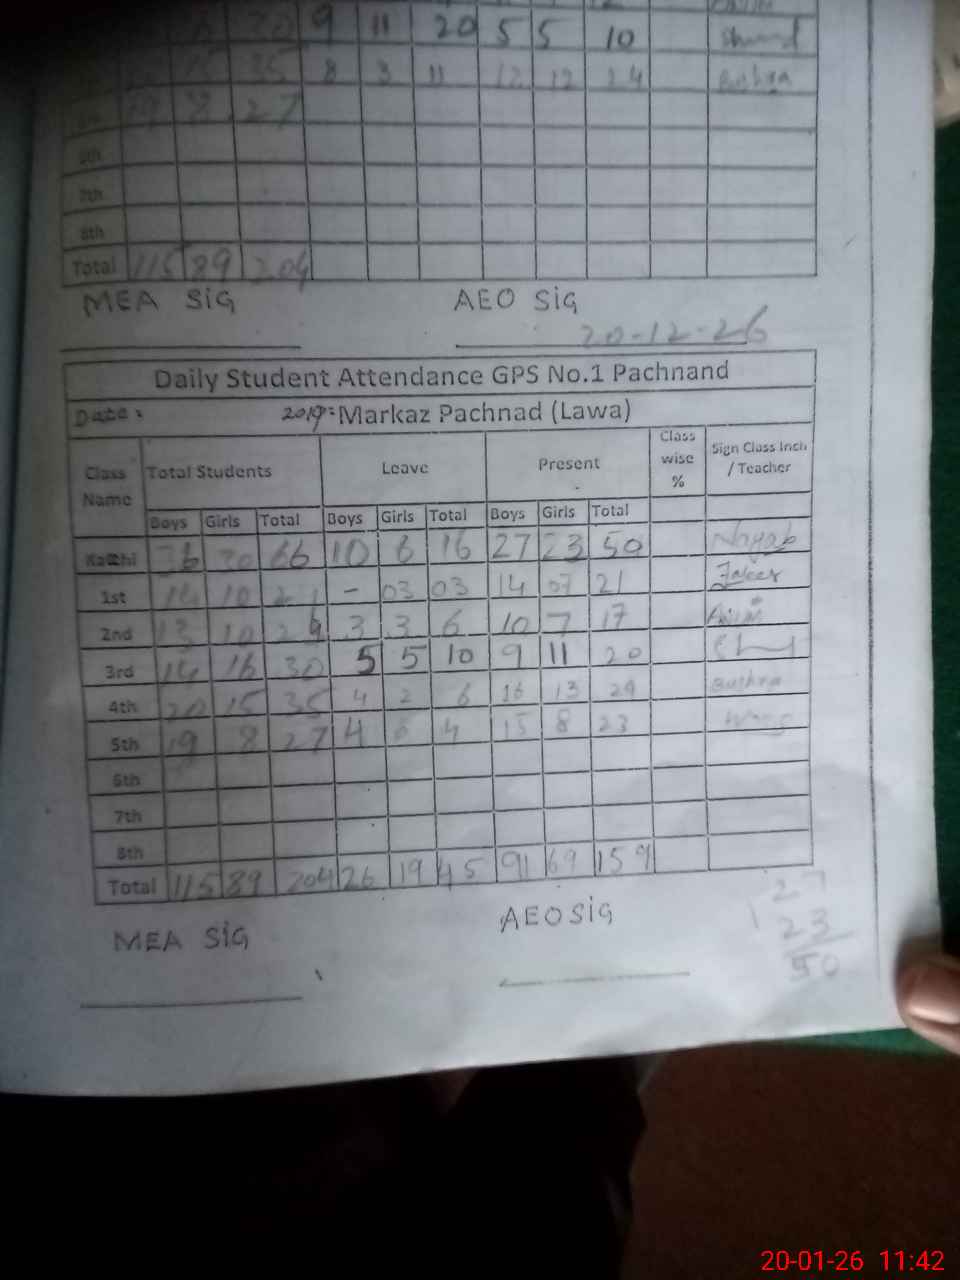 20 9 11 20 5 5 10
35 8 3 11 12 12 24 Bushra
19 8 27
6th
7th
8th
Total 115 89 204
MEA SiG AEO SiG
20-12-26
Daily Student Attendance GPS No.1 Pachnand
Date: Markaz Pachnad (Lawa)
Class Name Total Students Leave Present Class wise % Sign Class Inch / Teacher
Boys Girls Total Boys Girls Total Boys Girls Total
Katchi 36 30 66 10 6 16 27 23 50 Nayab
1st 14 10 24 - 03 03 14 07 21
2nd 13 10 3 3 6 10 7 17
3rd 14 16 30 5 5 10 9 11 20
4th 20 15 35 4 2 6 16 13 29 Bushra
5th 19 8 27 4 4 15 8 23
6th
7th
8th
Total 115 89 204 26 19 45 91 69 159
27
23
50
MEA SiG AEO SiG
20-01-26 11:42